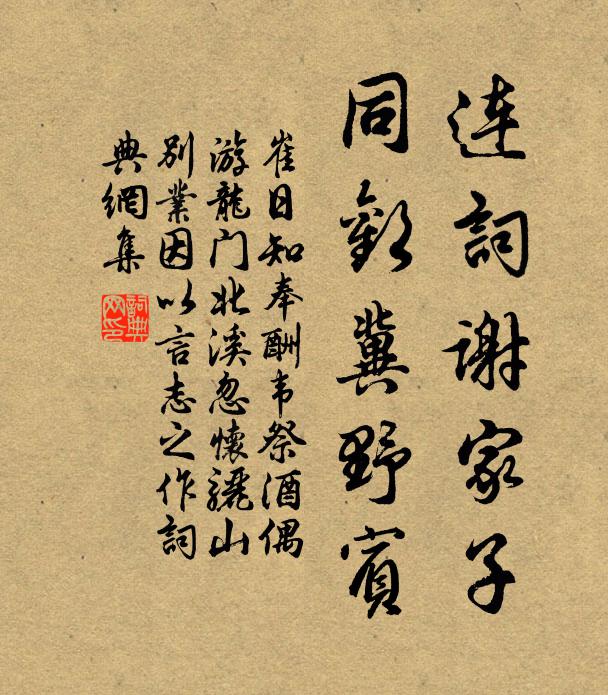 連詞謝家子
同歡冀野賓
崔日知奉酬韦祭酒偶
游龍门北溪忽懷驪山
別業因以言志之作詞
典網集
詞典
网印